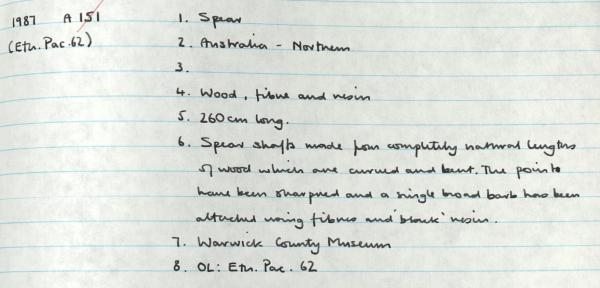 1987 A 151
(Etn. Pac. 62)
1. Spear
2. Australia - Northern
3.
4. Wood, fibre and resin
5. 260cm long.
6. Spear shafts made from completely natural lengths
of wood which are curved and bent. The points
have been sharpned and a single broad barb has been
attached using fibres and 'black' resin.
7. Warwick County Museum
8. OL: Etn. Pac. 62